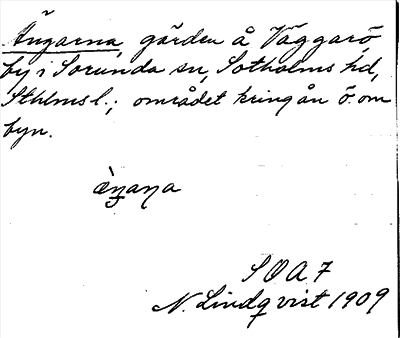 Ängarna, gärden å Väggarö
by i Sorunda sn, Sotholms hd,
Sthlms l.; området kring ån ö. om
byn.
æ̀ŋaɳa
S O A 7
N. Lindqvist 1909